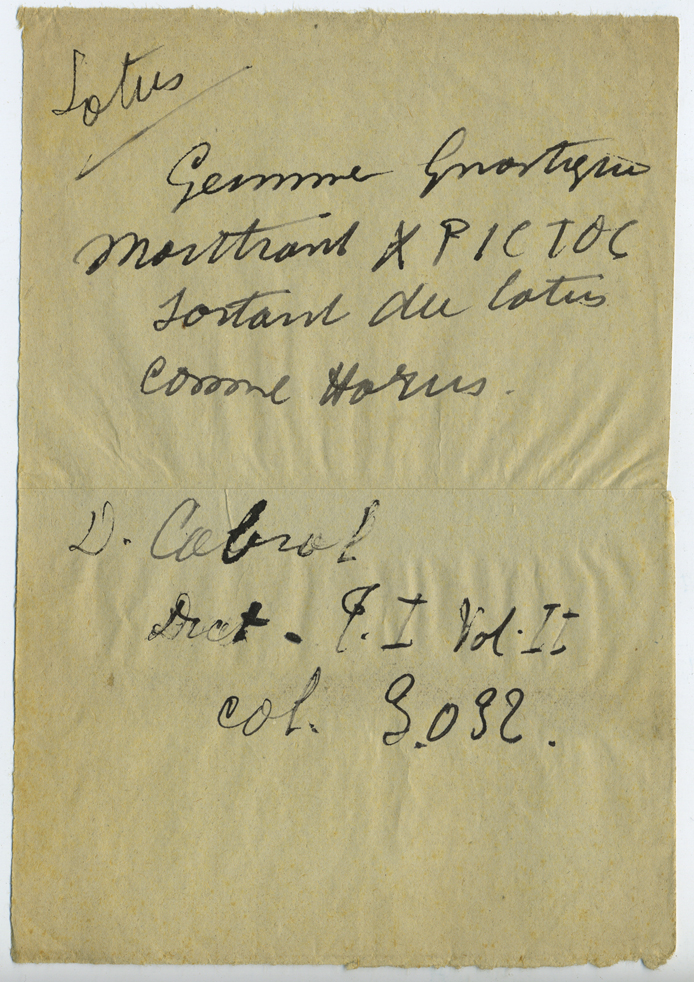 Lotus
Gemme Gnostique
Monttrant XPICTOC
Sortant du lotus
comme Horus.
D. Cabrol
Dict. T. I Vol. II
col. 3.032.